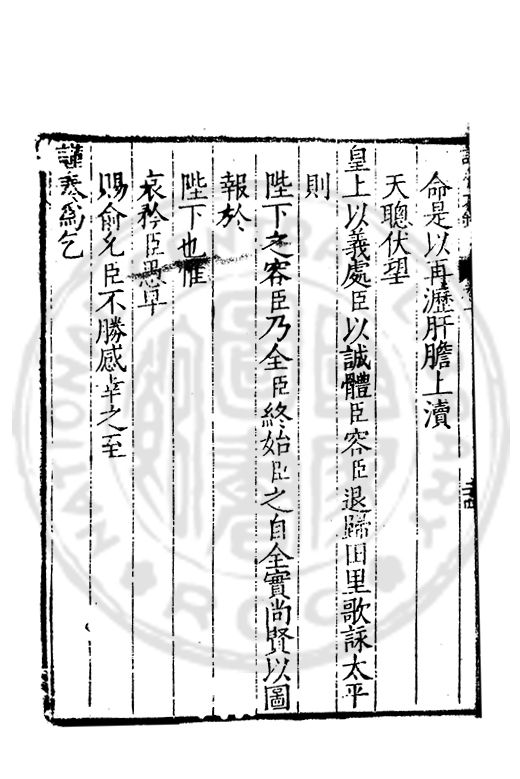 命是以再瀝肝膽上瀆
天聰伏望
皇上以義處臣以誠體臣容臣退歸田里歌詠太平
則
陛下之容臣乃全臣終始臣之自全實尚賢以圖
報於
陛下也惟
哀矜臣愚早
賜俞允臣不勝感幸之至
謹奏為乞